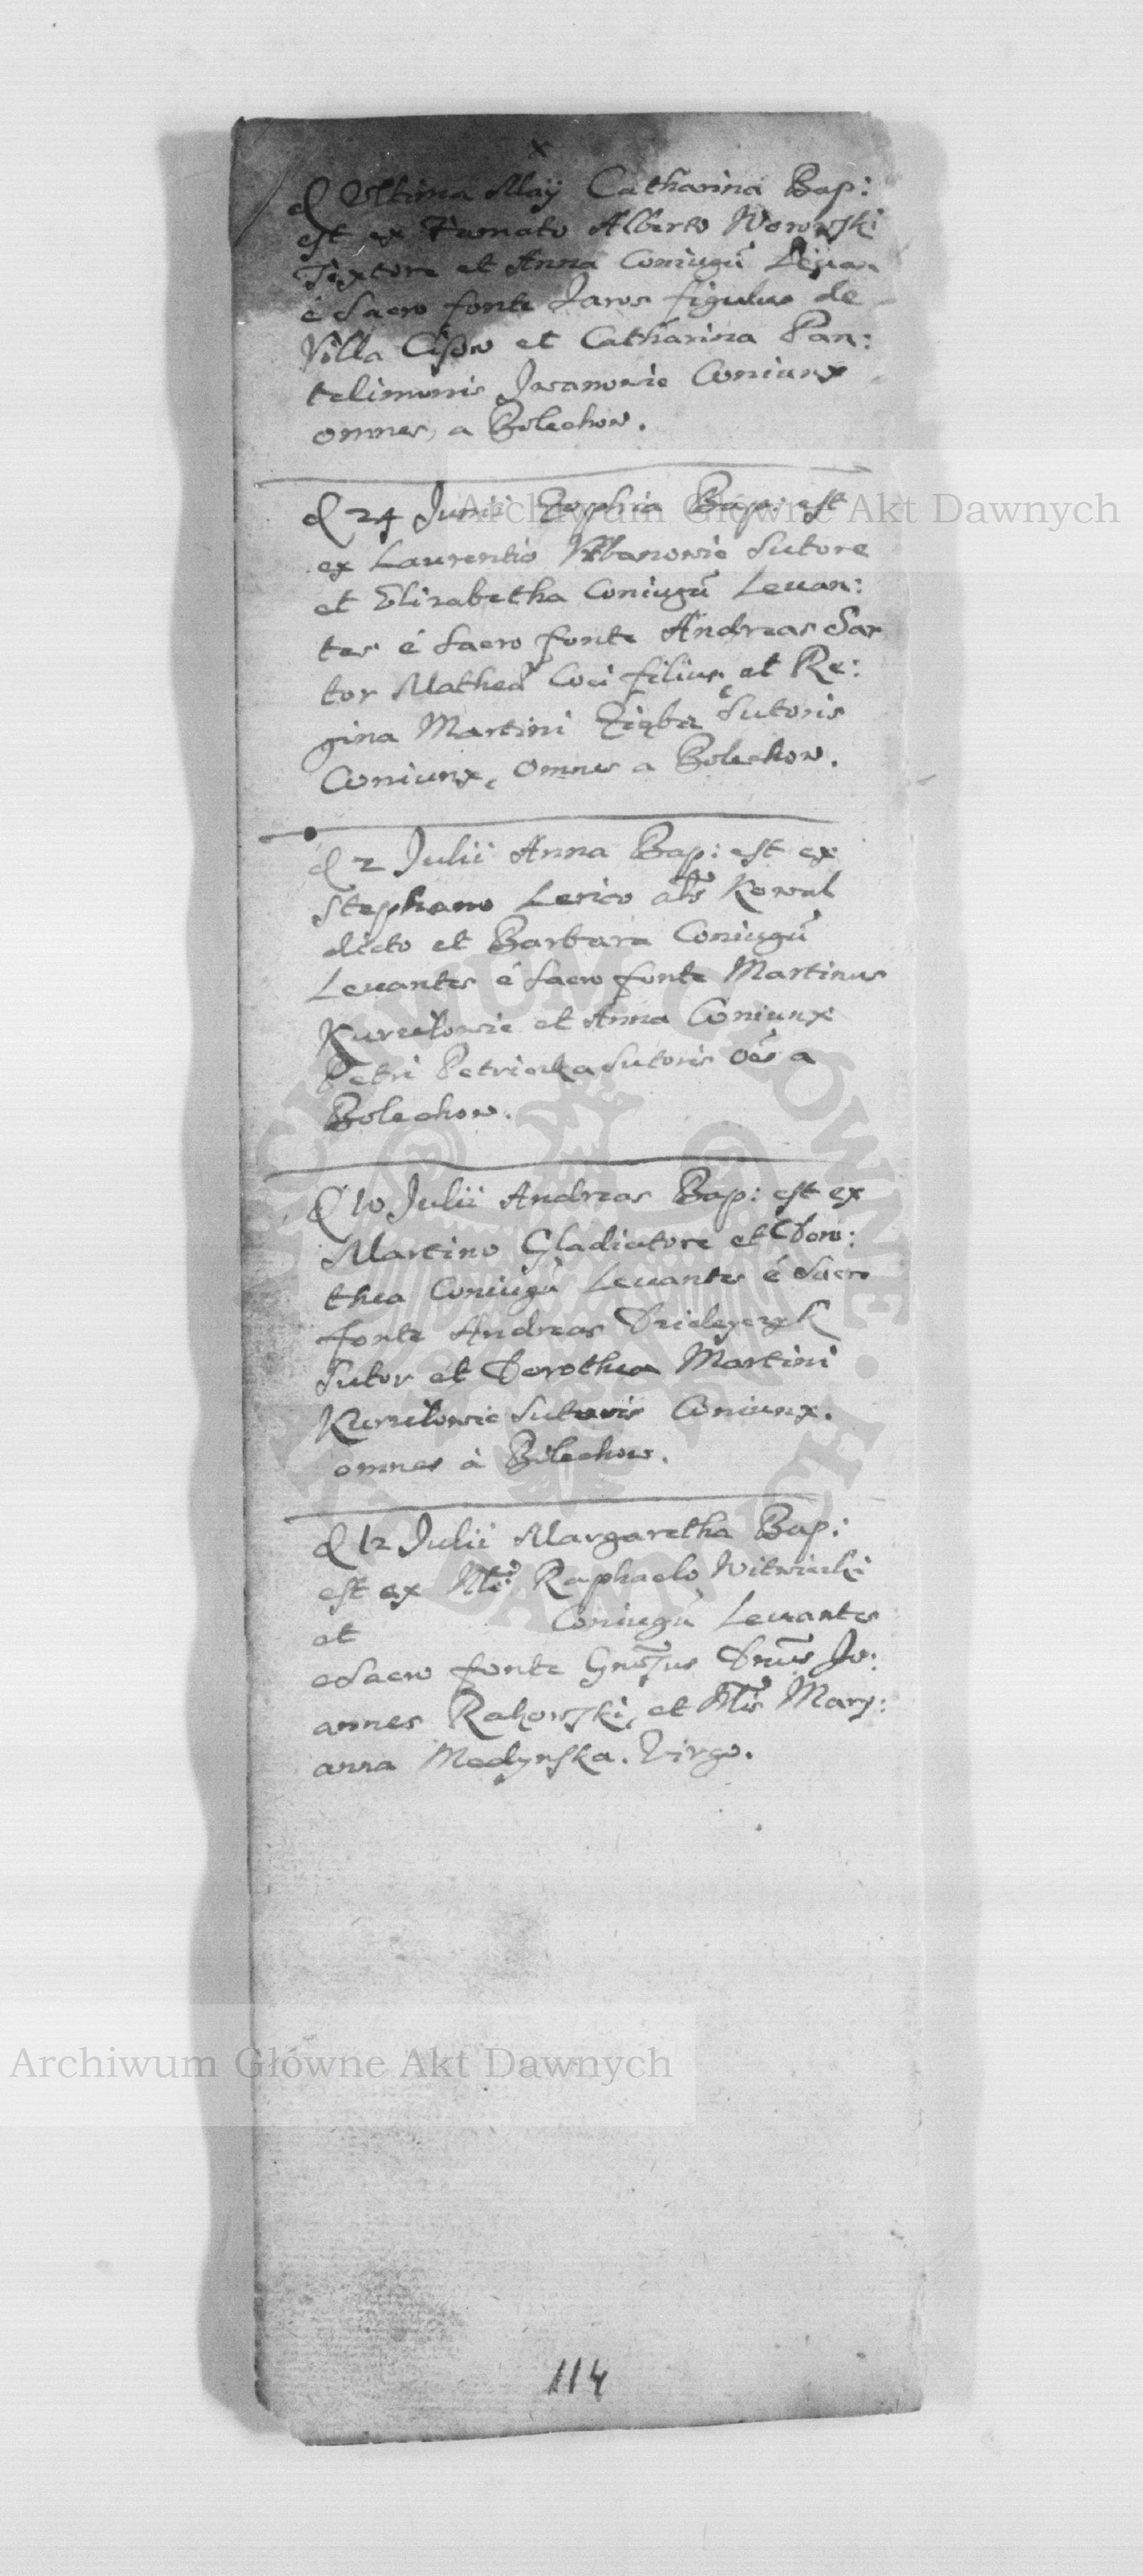 x
d Vltima Maij Catharina Bap:
est ex Famato Alberto Worowski
Textore et Anna Coniugũ Leuan
é Sacro fonte Jaros figulus de
Villa Cisow et Catharina Pan:
telimonis Iwanowic Coniunx
omnes, a Bolechow.
d 24 Junii Zophia Bap: est
ex Laurentio Vrbanowic Sutore
et Elizabetha Coniugũ Leuan:
tes é Sacro fonte Andreas Sar
tor Mathei filius et Re:
gina Martini Ziqba Sutoris
Coniunx, omnes a Bolechow.
d 2 Julii Anna Bap: est ex
Stephano Lerico als Kowal
dicto et Barbara Coniugũ
Leuantes é Sacro fonte Martinus
Kurzelowic et Anna Coniunx
Petri Petricika Sutoris oẽs a
Bolechow.
d 10 Julii Andreas Bap: est ex
Martino Gladiatore et Doro:
thea Coniugũ Leuantes é Sacro
fonte Andreas
Sutor et Dorothea Martini
Kurzelowic Sutoris Coniunx.
omnes à Bolechow.
d 12 Julii Margaretha Bap:
est ex Raphaelo Witwicki
et Coniugũ Leuantes
e Sacro fonte Gnosus Dnũs Jo:
annes Rakowski, et Mary:
anna Medynska. Virgo.
114
Archiwum Główne Akt Dawnych
Archiwum Główne Akt Dawnych
ARCHIWUM GŁÓWNE AKT DAWNYCH